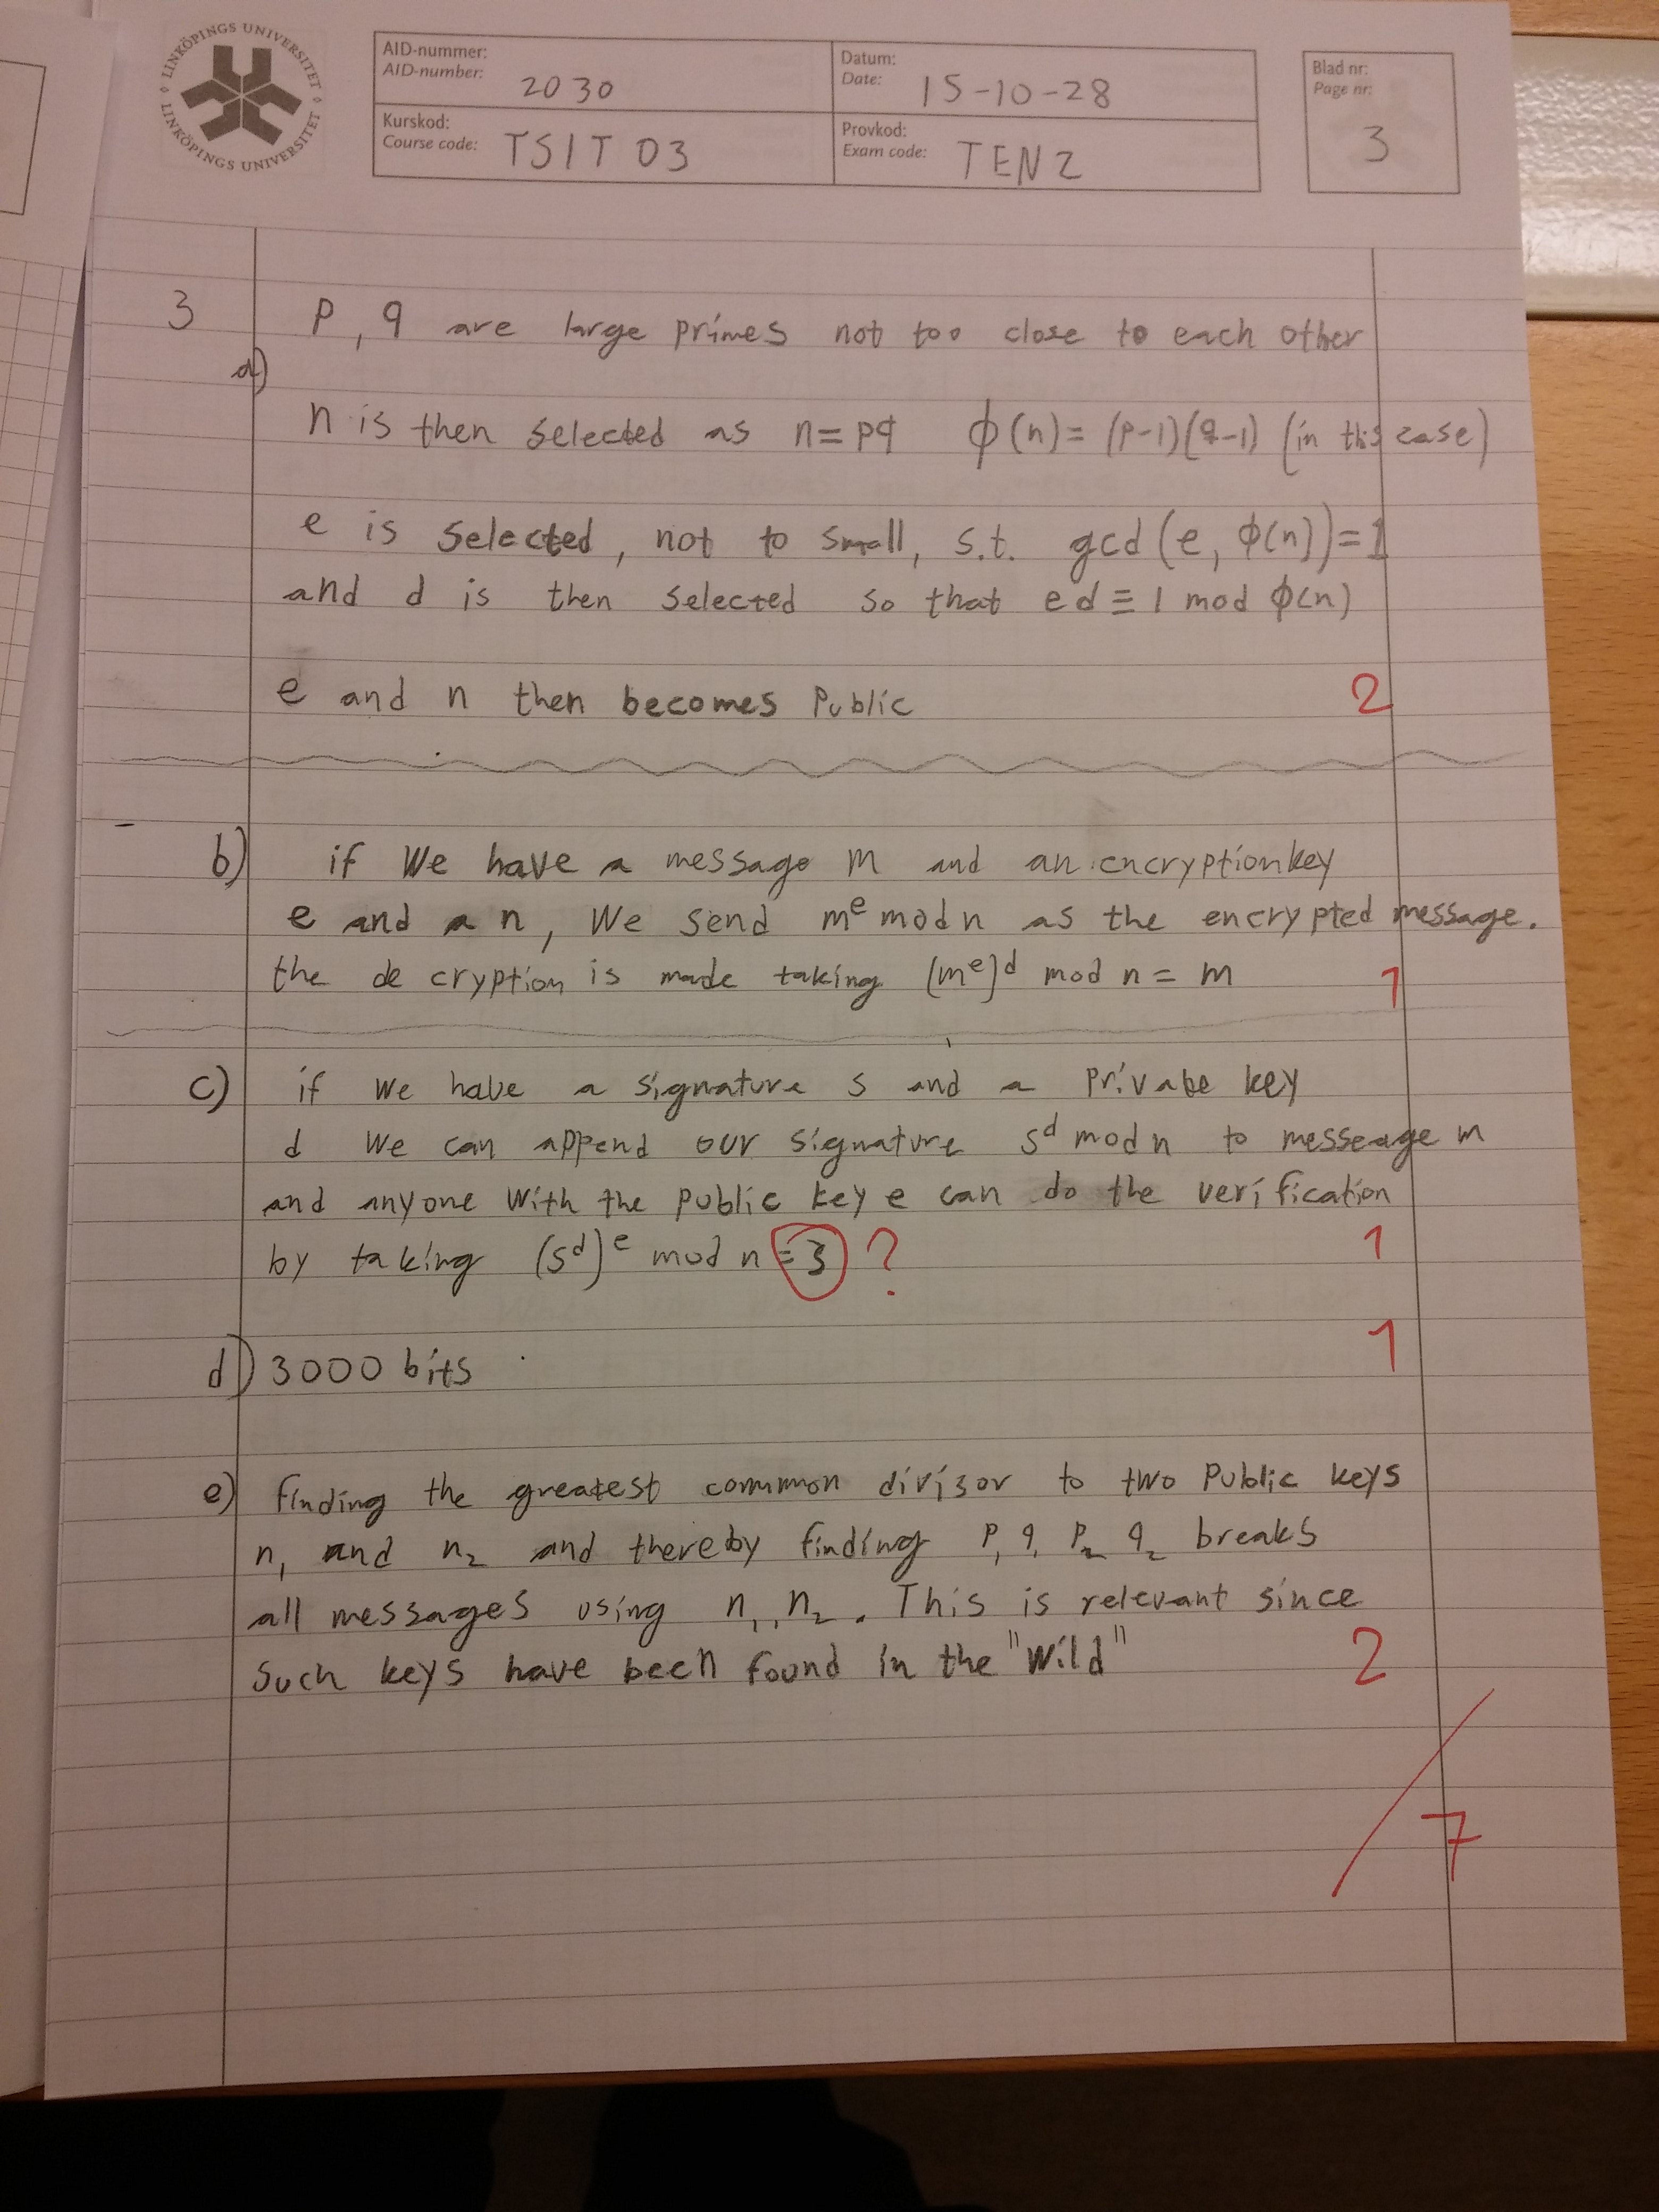 LINKÖPINGS UNIVERSITET
LINKÖPINGS UNIVERSITET
AID-nummer:
AID-number: 2030
Datum:
Date: 15-10-28
Blad nr:
Page nr:
3
Kurskod:
Course code: TSIT 03
Provkod:
Exam code: TEN2
3 p, q are large primes not too close to each other
a)
n is then selected as n=pq ϕ(n)=(p-1)(q-1) (in this case)
e is selected, not to small, s.t. gcd(e, ϕ(n))=1
and d is then selected so that ed≡1 mod ϕ(n)
e and n then becomes public 2
b) if we have a message m and an encryptionkey
e and a n, we send mᵉ mod n as the encrypted message.
the decryption is made taking (mᵉ)ᵈ mod n = m 1
c) if we have a signature s and a private key
d we can append our signature sᵈ mod n to messeage m
and anyone with the public key e can do the verification
by taking (sᵈ)ᵉ mod n = s ? 1
d) 3000 bits 1
e) finding the greatest common divisor to two public keys
n₁ and n₂ and thereby finding p₁ q₁ p₂ q₂ breaks
all messages using n₁, n₂. This is relevant since
such keys have been found in the "wild" 2
/7